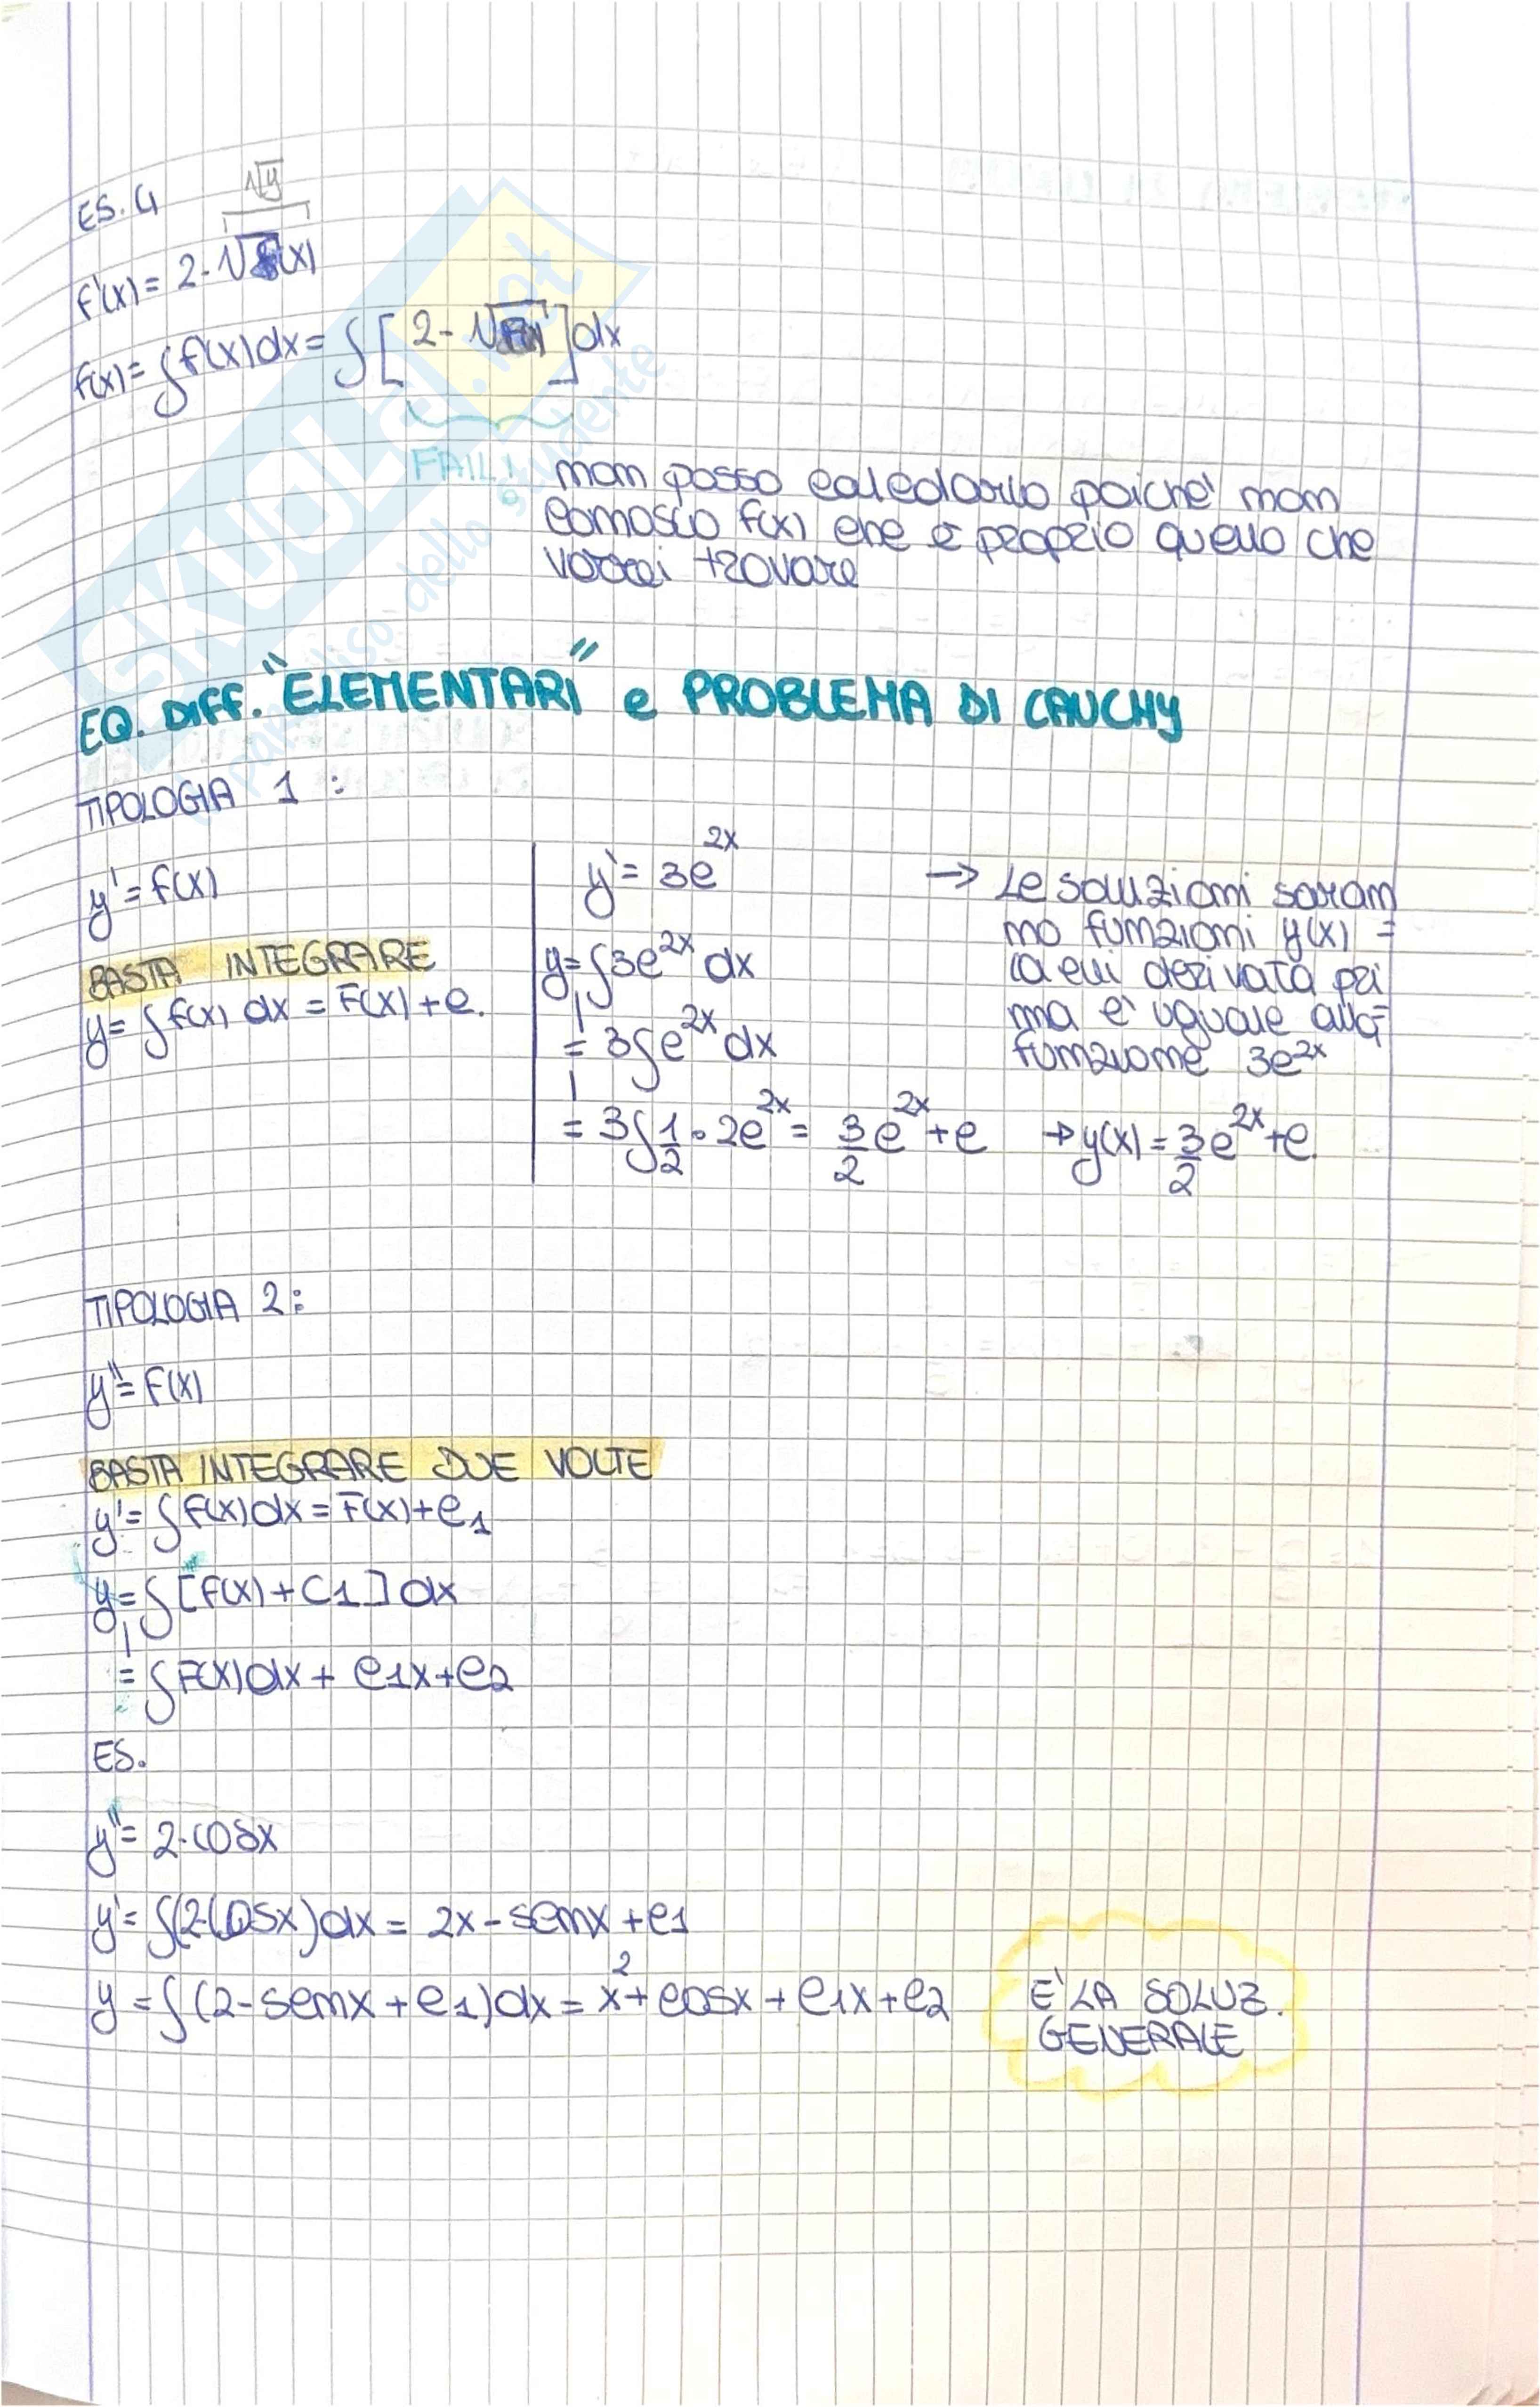 ES. 4
√y
f'(x) = 2-√f(x)
f(x) = ∫f'(x)dx = ∫[2-√f(x)]dx
FAIL! non posso calcolarlo poiché non
conosco f(x) che è proprio quello che
vorrei trovare
EQ. DIFF. "ELEMENTARI" e PROBLEMA DI CAUCHY
TIPOLOGIA 1 :
y' = f(x)
BASTA INTEGRARE
y = ∫f(x) dx = F(x) + c.
y' = 3e^2x
y = ∫3e^2x dx
= 3∫e^2x dx
= 3∫1/2 • 2e^2x = 3/2 e^2x + c → y(x) = 3/2 e^2x + c.
→ Le soluzioni saran
no funzioni y(x) =
la cui derivata pri
ma e' uguale alla
funzione 3e^2x
TIPOLOGIA 2:
y'' = f(x)
BASTA INTEGRARE DUE VOLTE
y' = ∫f(x)dx = F(x) + c1
y = ∫[F(x) + C1] dx
= ∫F(x)dx + c1x + c2
ES.
y'' = 2-cosx
y' = ∫(2-cosx)dx = 2x - senx + c1
y = ∫(2-senx + c1)dx = x^2 + cosx + c1x + c2
E' LA SOLUZ.
GENERALE
SKUOLA.net
il paradiso dello studente